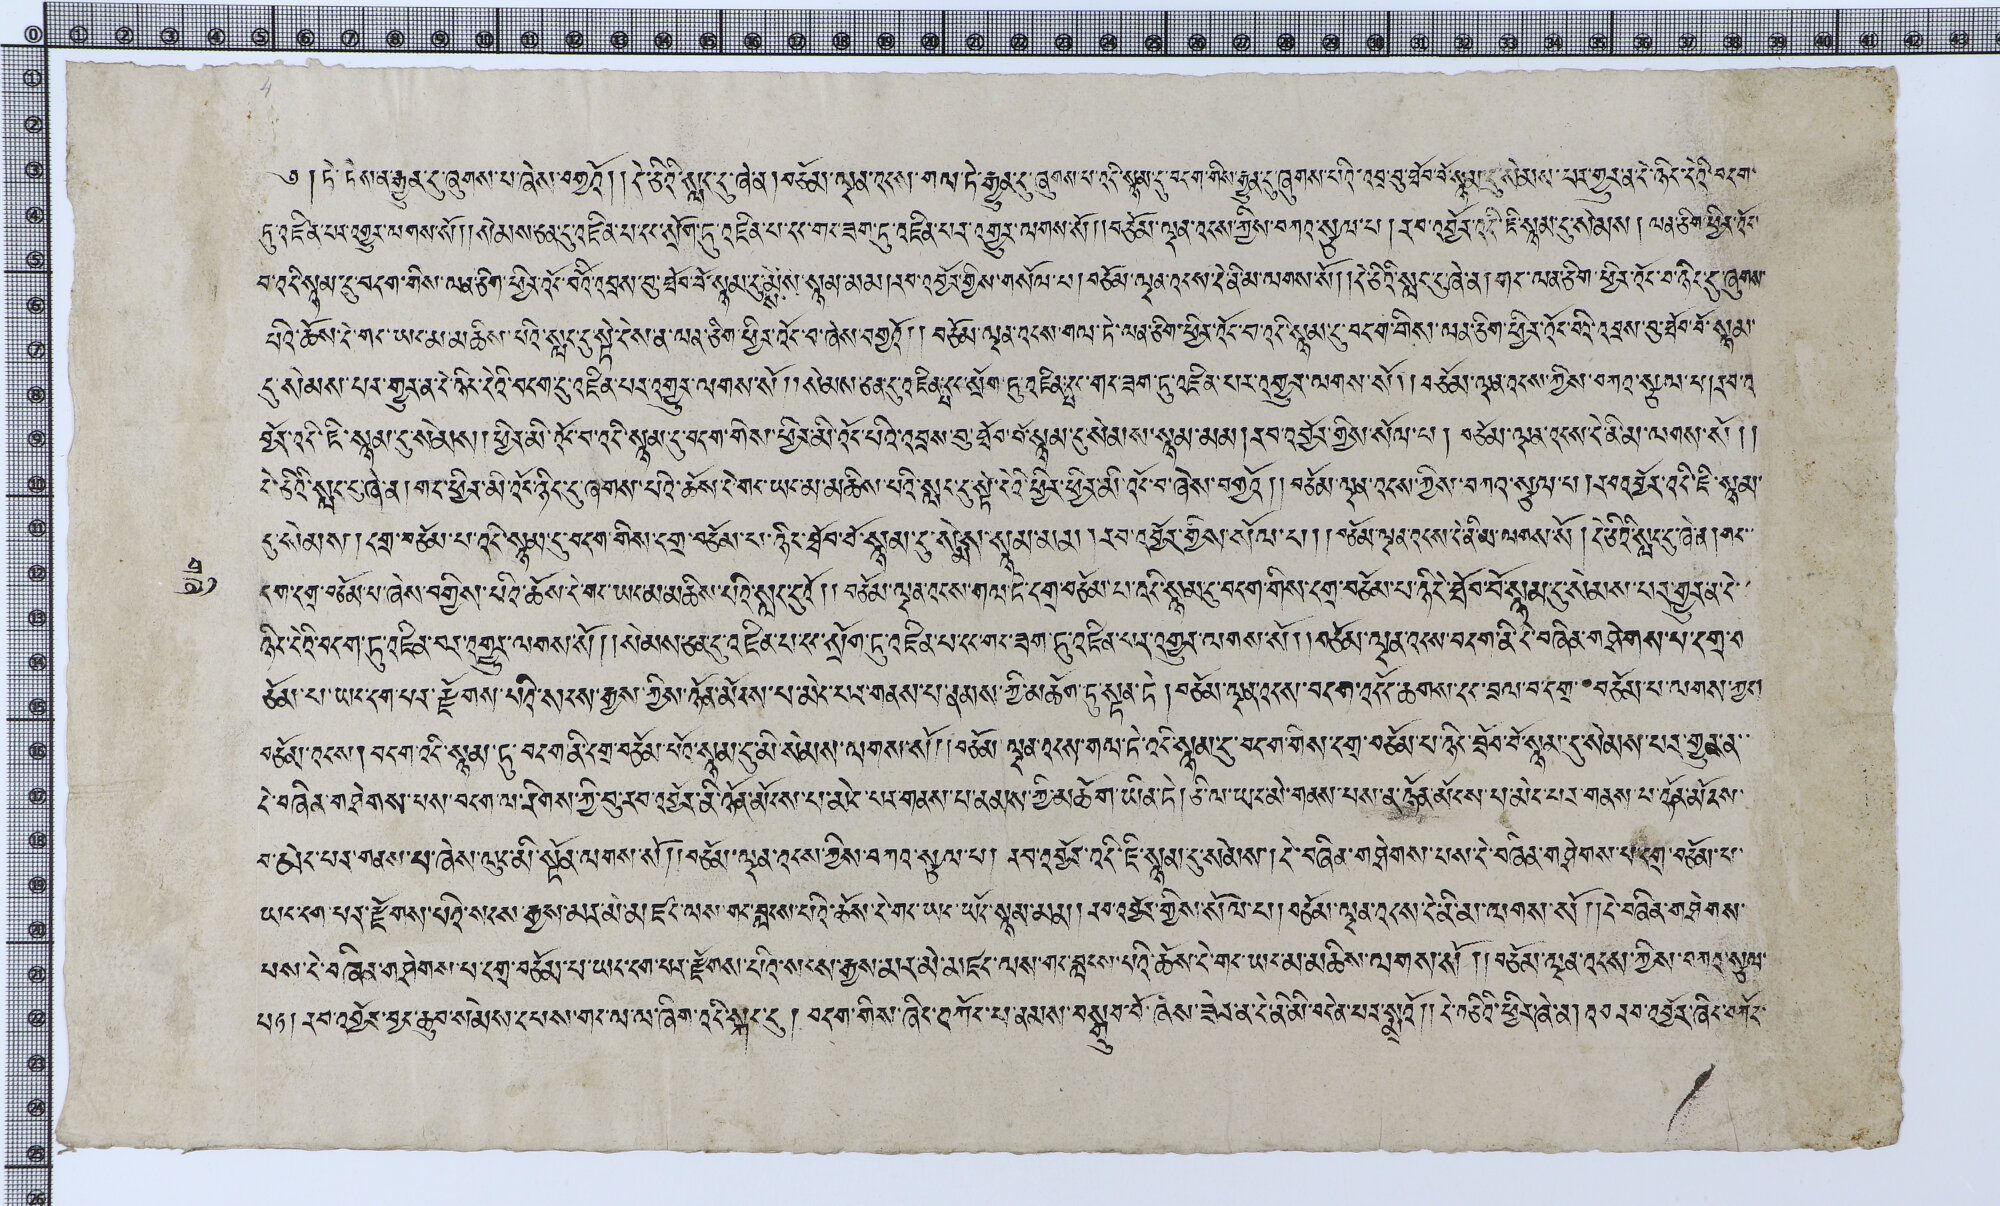 4
༄། །ཏེ་ཏེས་ན་རྒྱུན་དུ་ཞུགས་པ་ཞེས་བགྱིའོ། །དེ་ཅིའི་སླད་དུ་ཞེ་ན། བཅོམ་ལྡན་འདས། གལ་ཏེ་རྒྱུན་དུ་ཞུགས་པ་འདི་སྙམ་དུ་བདག་གིས་རྒྱུན་དུ་ཞུགས་པའི་འབྲས་བུ་ཐོབ་བོ་སྙམ་དུ་སེམས་པར་གྱུར་ན་དེ་ཉིད་དེའི་བདག་
ཏུ་འཛིན་པར་འགྱུར་ལགས་སོ། །སེམས་ཅན་དུ་འཛིན་པ་དང་སྲོག་ཏུ་འཛིན་པ་དང་གང་ཟག་ཏུ་འཛིན་པར་འགྱུར་ལགས་སོ། །བཅོམ་ལྡན་འདས་ཀྱིས་བཀའ་སྩལ་པ། རབ་འབྱོར་འདི་ཇི་སྙམ་དུ་སེམས། ལན་ཅིག་ཕྱིར་འོང་
བ་འདི་སྙམ་དུ་བདག་གིས་ལན་ཅིག་ཕྱིར་འོང་བའི་འབྲས་བུ་ཐོབ་བོ་སྙམ་དུ་སེམས་སྙམ་མམ། རབ་འབྱོར་གྱིས་གསོལ་པ། བཅོམ་ལྡན་འདས་དེ་ནི་མ་ལགས་སོ། །དེ་ཅིའི་སླད་དུ་ཞེ་ན། གང་ལན་ཅིག་ཕྱིར་འོང་བ་ཉིད་དུ་ཞུགས་
པའི་ཆོས་དེ་གང་ཡང་མ་མཆིས་པའི་སླད་དུ་སྟེ་དེས་ན་ལན་ཅིག་ཕྱིར་འོང་བ་ཞེས་བགྱིའོ། །བཅོམ་ལྡན་འདས་གལ་ཏེ་ལན་ཅིག་ཕྱིར་འོང་བ་འདི་སྙམ་དུ་བདག་གིས། ལན་ཅིག་ཕྱིར་འོང་བའི་འབྲས་བུ་ཐོབ་བོ་སྙམ་
དུ་སེམས་པར་གྱུར་ན་དེ་ཉིད་དེའི་བདག་དུ་འཛིན་པར་འགྱུར་ལགས་སོ། །སེམས་ཅན་དུ་འཛིན་པ་དང་སྲོག་ཏུ་འཛིན་པ་དང་གང་ཟག་ཏུ་འཛིན་པར་འགྱུར་ལགས་སོ། །བཅོམ་ལྡན་འདས་ཀྱིས་བཀའ་སྩལ་པ། རབ་འ
བྱོར་འདི་ཇི་སྙམ་དུ་སེམས། ཕྱིར་མི་འོང་བ་འདི་སྙམ་དུ་བདག་གིས་ཕྱིར་མི་འོང་པའི་འབྲས་བུ་ཐོབ་བོ་སྙམ་དུ་སེམས་སྙམ་མམ། རབ་འབྱོར་གྱིས་སོལ་པ། བཅོམ་ལྡན་འདས་དེ་ནི་མ་ལགས་སོ། །
དེ་ཅིའི་སླད་དུ་ཞེ་ན། གང་ཕྱིར་མི་འོང་ཉིད་དུ་ཞུགས་པའི་ཆོས་དེ་གང་ཡང་མ་མཆིས་པའི་སླད་དུ་སྟེ་དེའི་ཕྱིར་ཕྱིར་མི་འོང་བ་ཞེས་བགྱིའོ། །བཅོམ་ལྡན་འདས་ཀྱིས་བཀའ་སྩལ་པ། རབ་འབྱོར་འདི་ཇི་སྙམ་
དུ་སེམས། དགྲ་བཅོམ་པ་འདི་སྙམ་དུ་བདག་གིས་དགྲ་བཅོམ་པ་ཉིད་ཐོབ་བོ་སྙམ་དུ་སེམས་སྙམ་མམ། རབ་འབྱོར་གྱིས་སོལ་པ། །བཅོམ་ལྡན་འདས་དེ་ནི་མ་ལགས་སོ། དེ་ཅིའི་སླད་དུ་ཞེ་ན། གང་
དག་དགྲ་བཅོམ་པ་ཞེས་བགྱིས་པའི་ཆོས་དེ་གང་ཡང་མ་མཆིས་པའི་སླད་དུའོ། །བཅོམ་ལྡན་འདས་གལ་ཏེ་དགྲ་བཅོམ་པ་འདི་སྙམ་དུ་བདག་གིས་དགྲ་བཅོམ་པ་ཉིད་ཐོབ་བོ་སྙམ་དུ་སེམས་པར་གྱུར་ན་དེ་
ཉིད་དེའི་བདག་ཏུ་འཛིན་བར་འགྱུར་ལགས་སོ། །སེམས་ཅན་དུ་འཛིན་པ་དང་སྲོག་ཏུ་འཛིན་པ་དང་གང་ཟག་ཏུ་འཛིན་པར་འགྱུར་ལགས་སོ། །བཅོམ་ལྡན་འདས་བདག་ནི་དེ་བཞིན་གཤེགས་པ་དགྲ་བ
ཅོམ་པ་ཡང་དག་པར་རྫོགས་པའི་སངས་རྒྱས་ཀྱིས་ཉོན་མོངས་པ་མེད་པར་གནས་པ་རྣམས་ཀྱི་མཆོག་ཏུ་སྟན་ཏེ། བཅོམ་ལྡན་འདས་བདག་འདོད་ཆགས་དང་བྲལ་བ་དགྲ་བཅོམ་པ་ལགས་ཀྱང།
བཅོམ་འདས། བདག་འདི་སྙམ་ཏུ་བདག་ནི་དགྲ་བཅོམ་པའོ་སྙམ་དུ་མི་སེམས་ལགས་སོ། །བཅོམ་ལྡན་འདས་གལ་ཏེ་འདི་སྙམ་དུ་བདག་གིས་དགྲ་བཅོམ་པ་ཉིད་ཐོབ་བོ་སྙམ་དུ་སེམས་པར་གྱུར་ན་
དེ་བཞིན་གཤེགས་པས་བདག་ལ་རིགས་ཀྱི་བུ་རབ་འབྱོར་ནི་ཉོན་མོངས་པ་མེད་པར་གནས་པ་རྣམས་ཀྱི་མཆོག་ཡིན་ཏེ། ཅི་ལ་ཡང་མི་གནས་པས་ན་ཉོན་མོངས་པ་མེད་པར་གནས་པ་ཉོན་མོངས་
བ་མེད་པར་གནས་པ་ཞེས་ལུང་མི་སྟོན་ལགས་སོ། །བཅོམ་ལྡན་འདས་ཀྱིས་བཀའ་སྩལ་པ། རབ་འབྱོར་འདི་ཇི་སྙམ་དུ་སེམས། དེ་བཞིན་གཤེགས་པས་དེ་བཞིན་གཤེགས་པ་དགྲ་བཅོམ་པ་
ཡང་དག་པར་རྫོགས་པའི་སངས་རྒྱས་མར་མེ་མཛད་ལས་གང་བླངས་པའི་ཆོས་དེ་གང་ཡང་ཡོད་སྙམ་མམ། རབ་འབྱོར་གྱིས་སོལ་པ། བཅོམ་ལྡན་འདས་དེ་ནི་མ་ལགས་སོ། །དེ་བཞིན་གཤེགས་
པས་དེ་བཞིན་གཤེགས་པ་དགྲ་བཅོམ་པ་ཡང་དག་པར་རྫོགས་པའི་སངས་རྒྱས་མར་མེ་མཛད་ལས་གང་བླངས་པའི་ཆོས་དེ་གང་ཡང་མ་མཆིས་ལགས་སོ། །བཅོམ་ལྡན་འདས་ཀྱིས་བཀའ་སྩལ་
པ། རབ་འབྱོར་བྱང་ཆུབ་སེམས་དཔས་གང་ལ་ལ་ཞིག་འདི་སྐད་དུ། བདག་གིས་ཞིང་བཀོད་པ་རྣམས་བསྒྲུབ་བོ་ཞེས་ཟེར་ན་དེ་ནི་མི་བདེན་པར་སྨྲའོ། །དེ་ཅིའི་ཕྱིར་ཞེ་ན། རབ་འབྱོར་ཞིང་བཀོད་